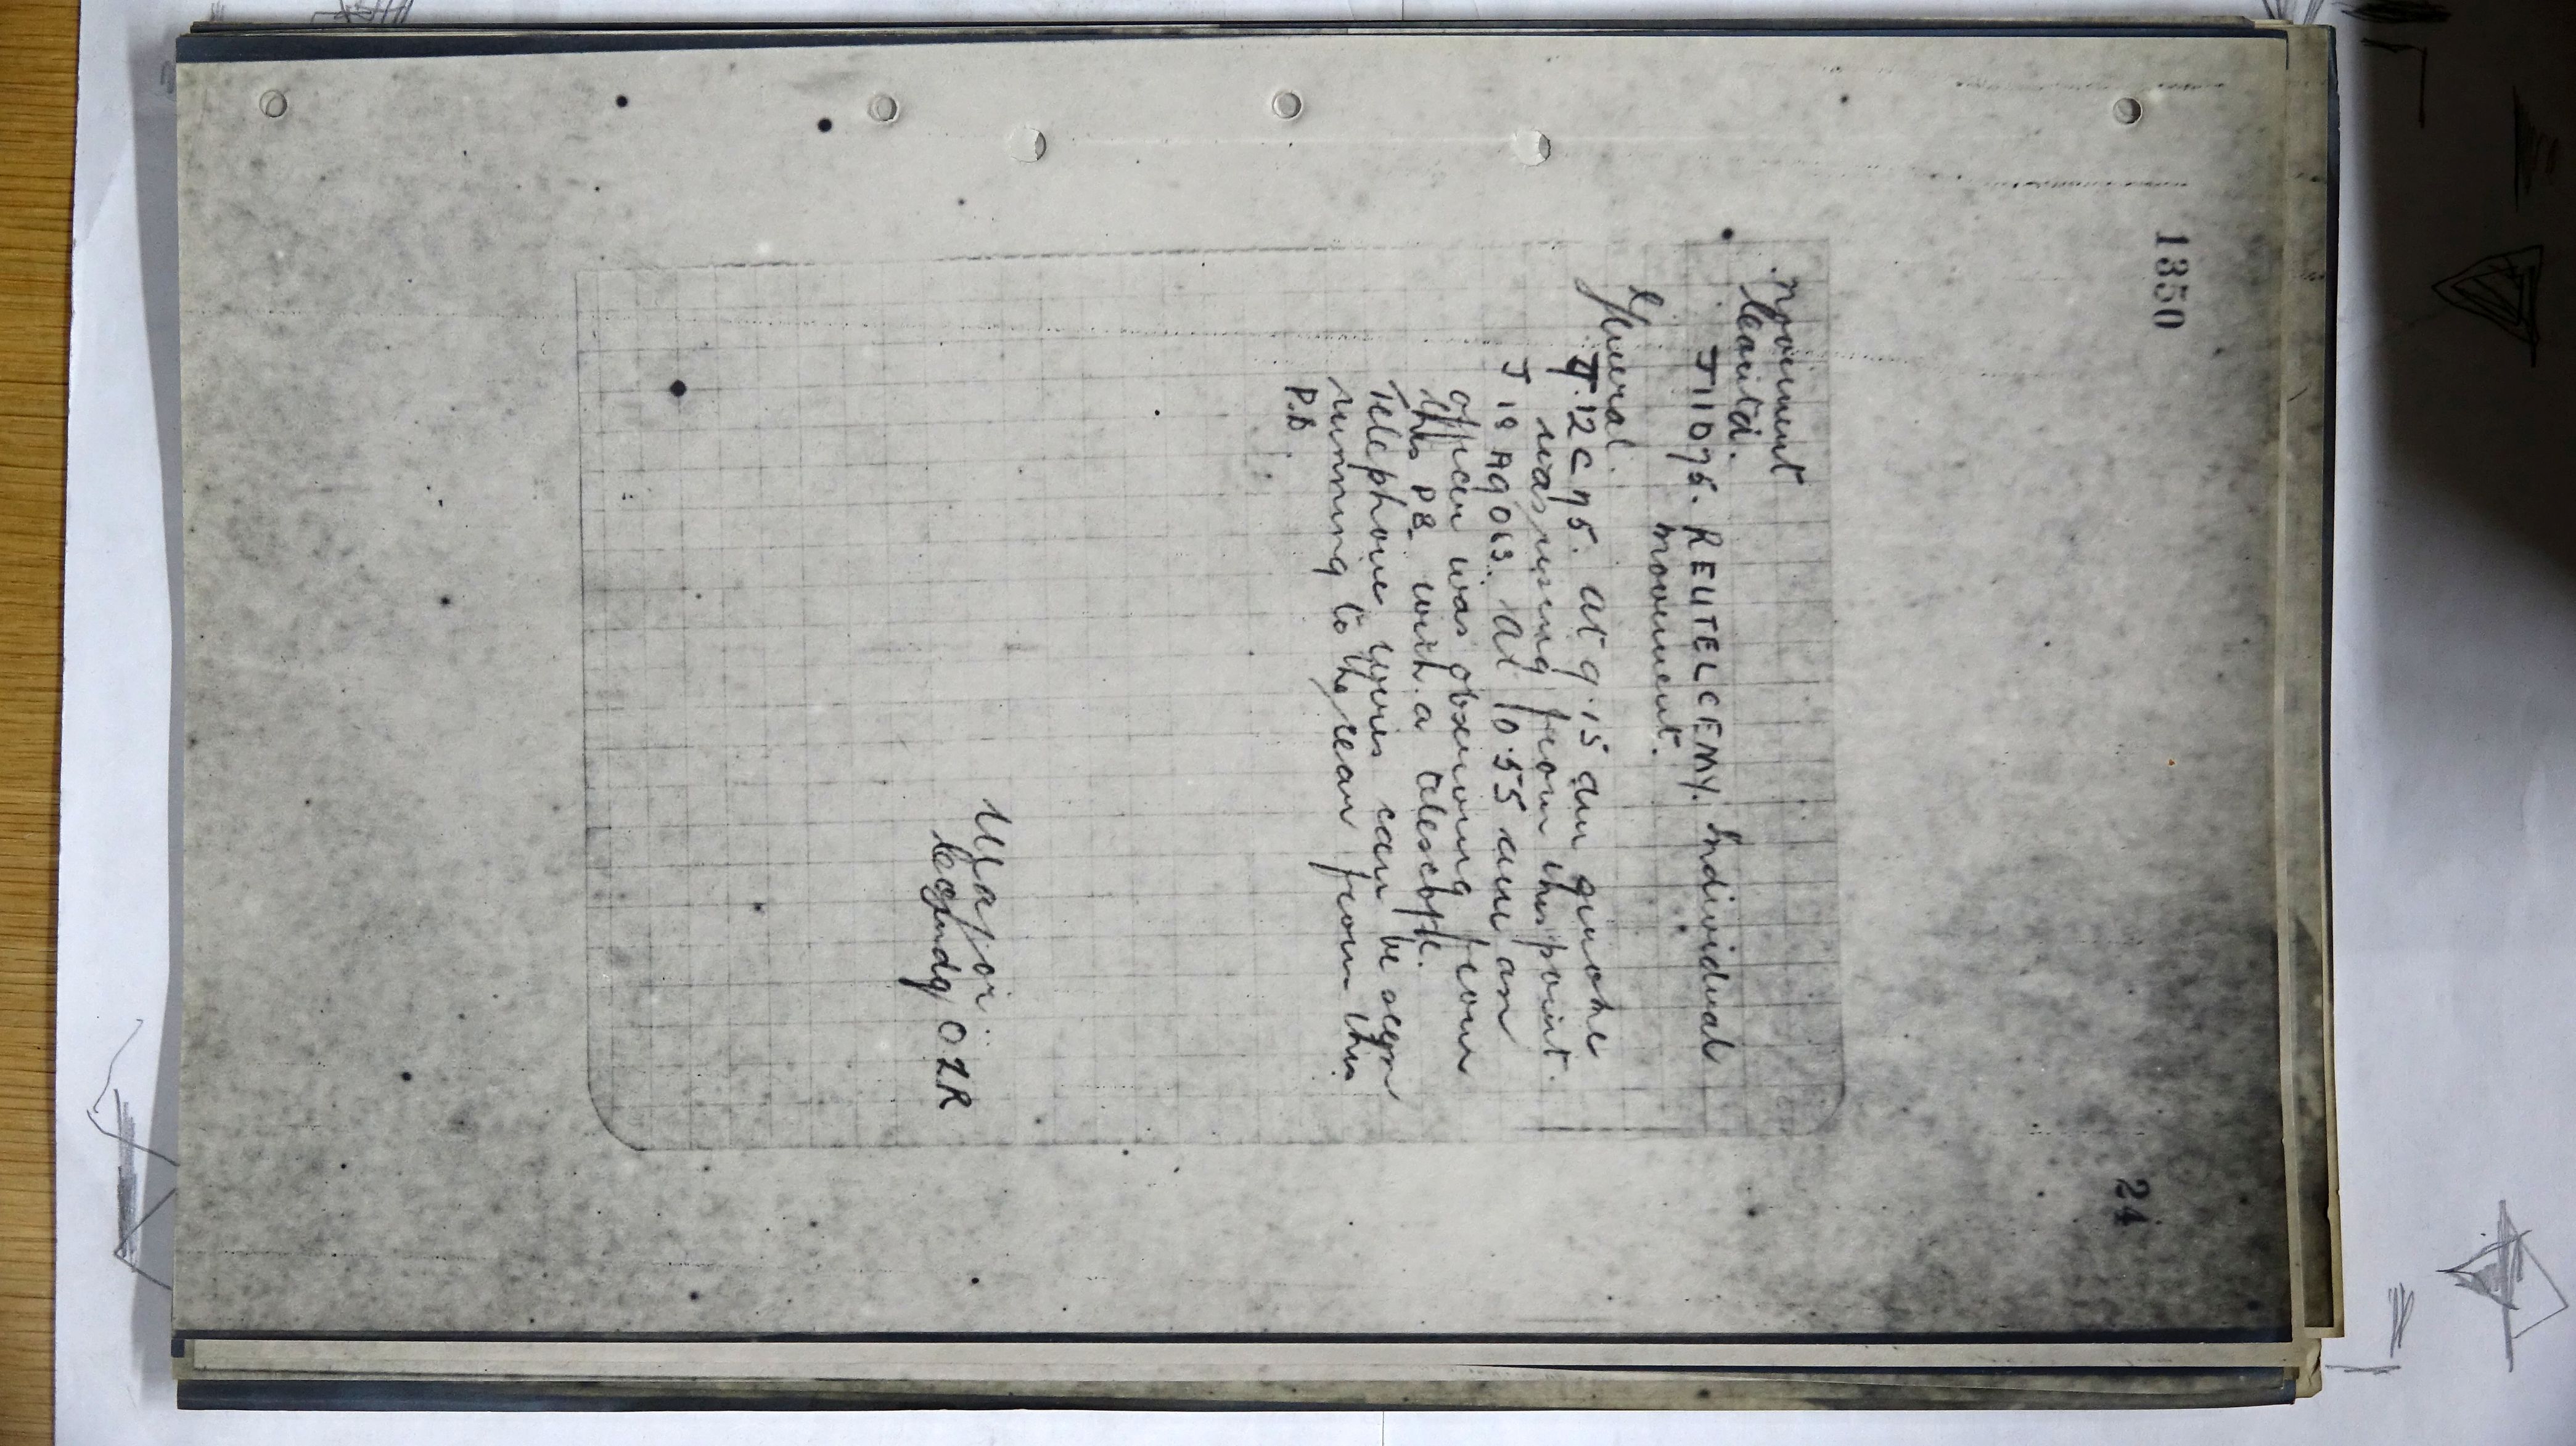 1350
24
Movement
Located.
J11D95. REUTELCEMY. Individual
movement.
General.
J.12C75. at 9.15 am smoke
was rising from this point.
J 18 A9063. At 10.55 am an
officer was observing from
this PB with a telescope.
Telephone wires can be seen
running to the rear from this
P.B.
Major
Comdg O2R